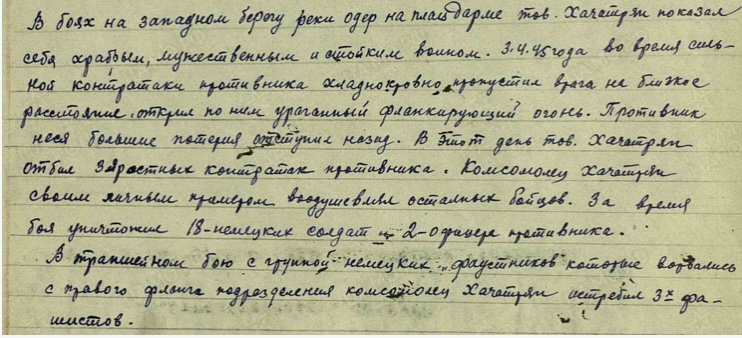 В боях на западном берегу реки одер на плацдарме тов. Хачатрян показал
себя храбрым, мужественным и стойким воином. 3.4.45 года во время силь-
ной контратаки противника хладнокровно пропустил врага на близкое
расстояние, открыл по ним ураганный фланкирующий огонь. Противник
неся большие потерия отступил назад. В этот день тов. Хачатрян
отбил 3 яростных контратак противника. Комсомолец Хачатрян
своим личным примером воодушевлял остальных бойцов. За время
боя уничтожил 18-немецких солдат и 2-офицера противника.
В траншейном бою с группой немецких "фаустников" которые ворвались
с правого фланга подразделения комсомолец Хачатрян истребил 3х фа-
шистов.